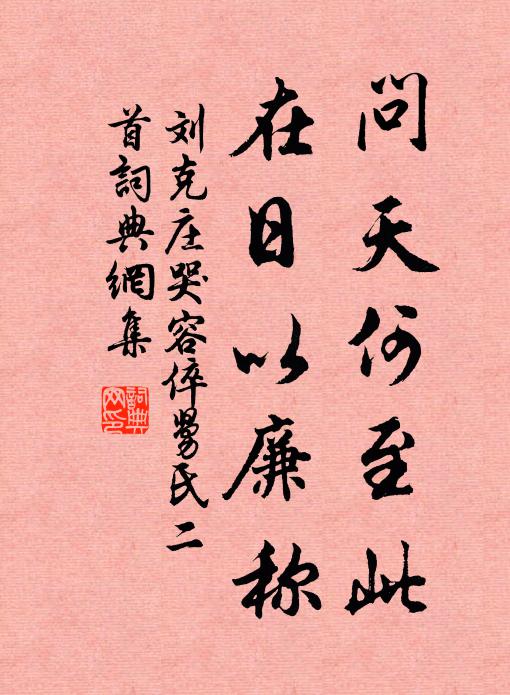 问天何至此
在日以廉称
刘克庄哭容倅劳氏二
首詞典網集
詞典
网印